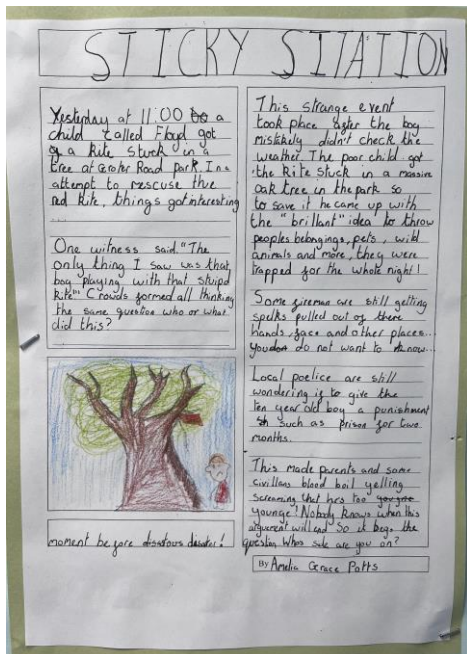 STICKY SITATION
Yesterday at 11:00 to a
child called Floyd got
a kite stuck in a
tree at Groter Road park. In a
attempt to rescuse the
red kite, things got interesting
...
One witness said "The
only thing I saw was that
boy playing with that stuipd
kite" Crowds formed all thinking
the same question who or what
did this?
moment before disatous disater!
This strange event
took place after the boy
mistakely didn't check the
weather. The poor child got
the kite stuck in a massive
oak tree in the park so
to save it he came up with
the "brillant" idea to throw
peoples belongings, pets, wild
animals and more, they were
trapped for the whole night!
Some fireman are still getting
spelks pulled out of there
hands, face and other places...
You do not want to know...
Local poelice are still
wondering is to give the
ten year old boy a punishment
such as prison for two
months.
This made parents and some
civillans blood boil yelling
screaming that he's too
younge! Nobody knows when this
arguement will end so it begs the
question whos side are you on?
By Amelia Grace Potts